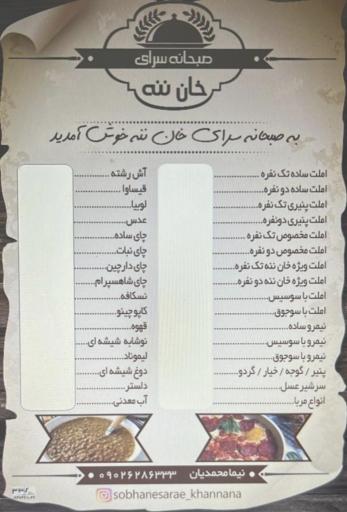 صبحانه سرای
خان ننه
به صبحانه سرای خان ننه خوش آمدید
املت ساده تک نفره
املت ساده دو نفره
املت پنیری تک نفره
املت پنیری دونفره
املت مخصوص تک نفره
املت مخصوص دو نفره
املت ویژه خان ننه تک نفره
املت ویژه خان ننه دو نفره
املت با سوسیس
املت با سوجوق
نیمرو ساده
نیمرو با سوسیس
نیمرو با سوجوق
پنیر / گوجه / خیار / گردو
سرشیر عسل
انواع مربا
آش رشته
قیساوا
لوبیا
عدس
چای ساده
چای نبات
چای دارچین
چای شاهسپرام
نسکافه
کاپوچینو
قهوه
نوشابه شیشه ای
لیموناد
دوغ شیشه ای
دلستر
آب معدنی
نیما محمدیان
۰۹۰۲۶۲۸۶۳۳۳
sobhanesarae_khannana